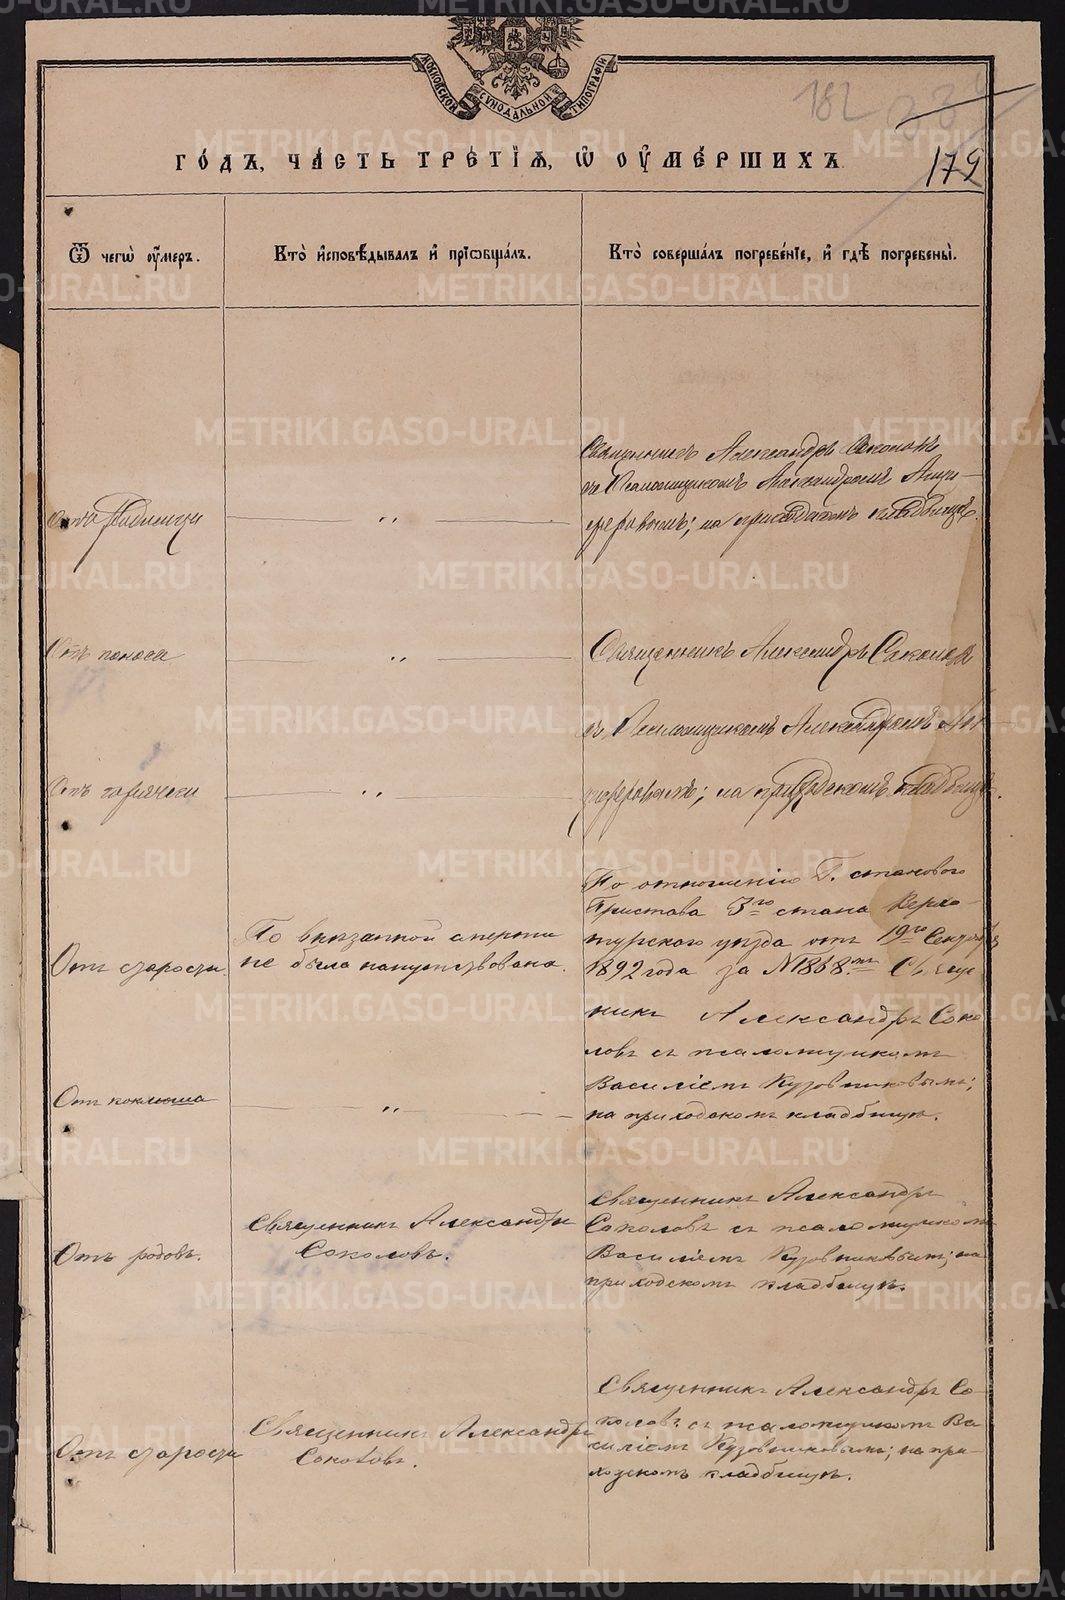 МОСКОВСКОЙ СѴНОДАЛЬНОЙ ТИПОГРАФІИ
182
179
ГОДЪ, ЧАСТЬ ТРЕТІѦ, Ѡ ОУМЕРШИХЪ.
Ѿ чегѡ оумеръ.
Кто исповѣдывалъ и прїѡбщалъ.
Кто совершалъ погребенїе, и гдѣ погребены.
Священникъ Александръ Соколовъ
съ Псаломщикомъ Александромъ Анци-
феровымъ; на приходскомъ кладбищѣ.
„
Отъ поноса
„
Священникъ Александръ Соколовъ
съ Псаломщикомъ Александромъ Ан-
циферовымъ; на приходскомъ кладбищѣ.
Отъ горячки
„
Отъ старости
По внезапной смерти
не была напутствована.
По отношенію Г. станового
Пристава 3го стана Верхо-
турскаго уѣзда отъ 19го Сентября
1892 года за № 1868мъ Священ-
никъ Александръ Соко-
ловъ съ псаломщикомъ
Василіемъ Кузовниковымъ;
на приходскомъ кладбищѣ.
Отъ коклюша
„
Отъ родовъ.
Священникъ Александръ
Соколовъ.
Священникъ Александръ
Соколовъ съ псаломщикомъ
Василіемъ Кузовниковымъ; на
приходскомъ кладбищѣ.
Отъ старости
Священникъ Александръ
Соколовъ.
Священникъ Александръ Со-
коловъ съ псаломщикомъ Ва-
силіемъ Кузовниковымъ; на при-
ходскомъ кладбищѣ.
METRIKI.GASO-URAL.RU